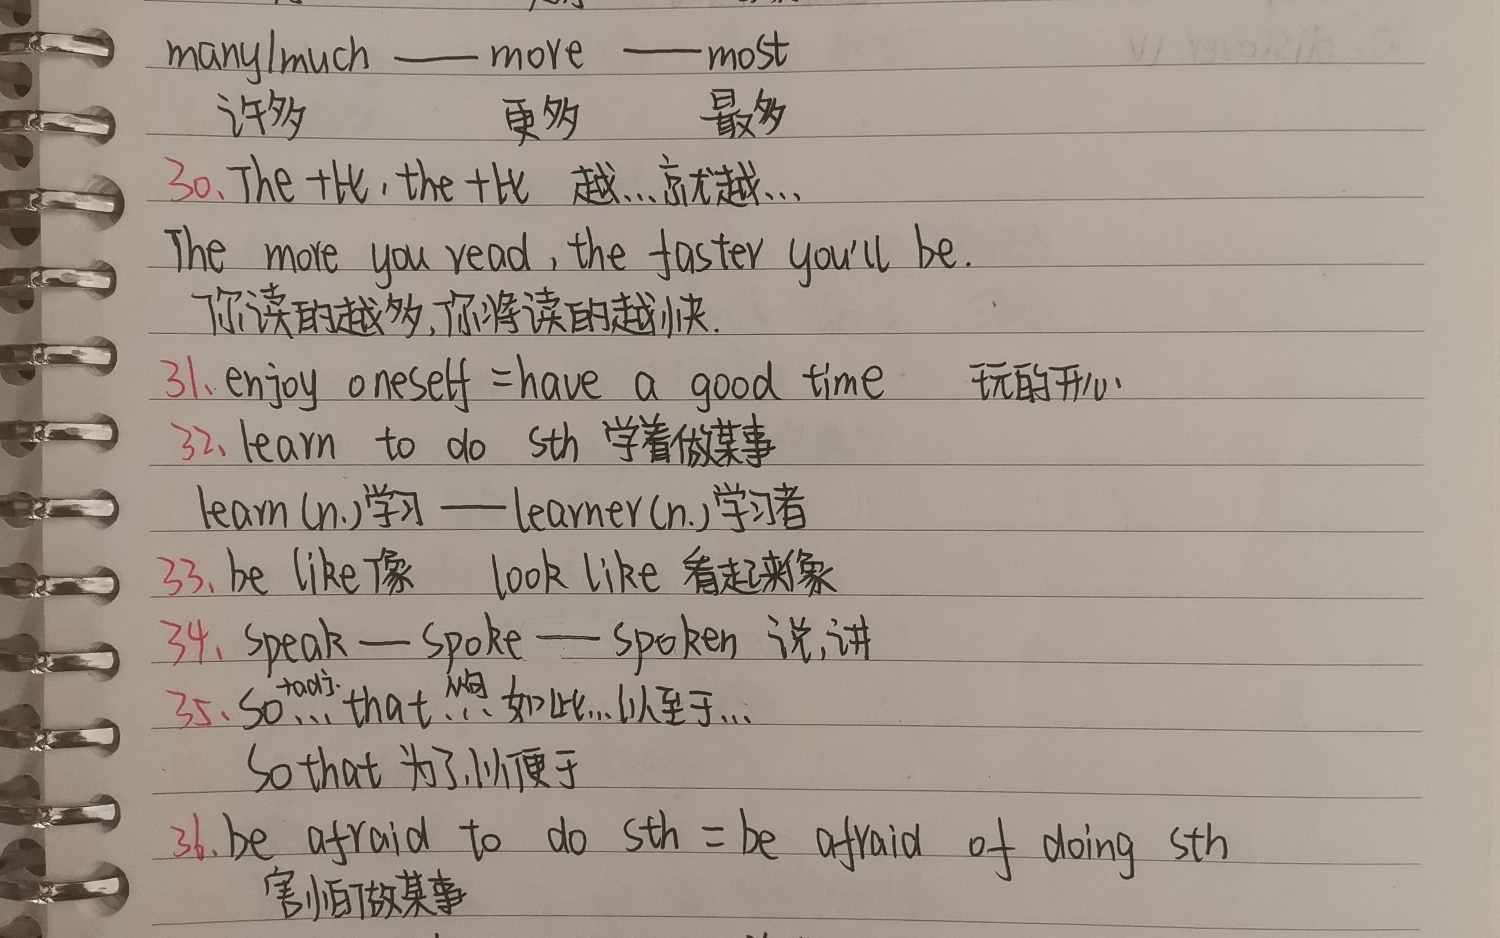 many/much — more — most
许多 更多 最多
30. The +比, the +比 越...就越...
The more you read, the faster you'll be.
你读的越多,你将读的越快.
31. enjoy oneself = have a good time 玩的开心
32. learn to do sth 学着做某事
learn (n.) 学习 — learner (n.) 学习者
33. be like 像 look like 看起来像
34. speak — spoke — spoken 说,讲
+adj. 从句
35. so ... that ... 如此...以至于...
So that 为了,以便于
36. be afraid to do sth = be afraid of doing sth
害怕做某事